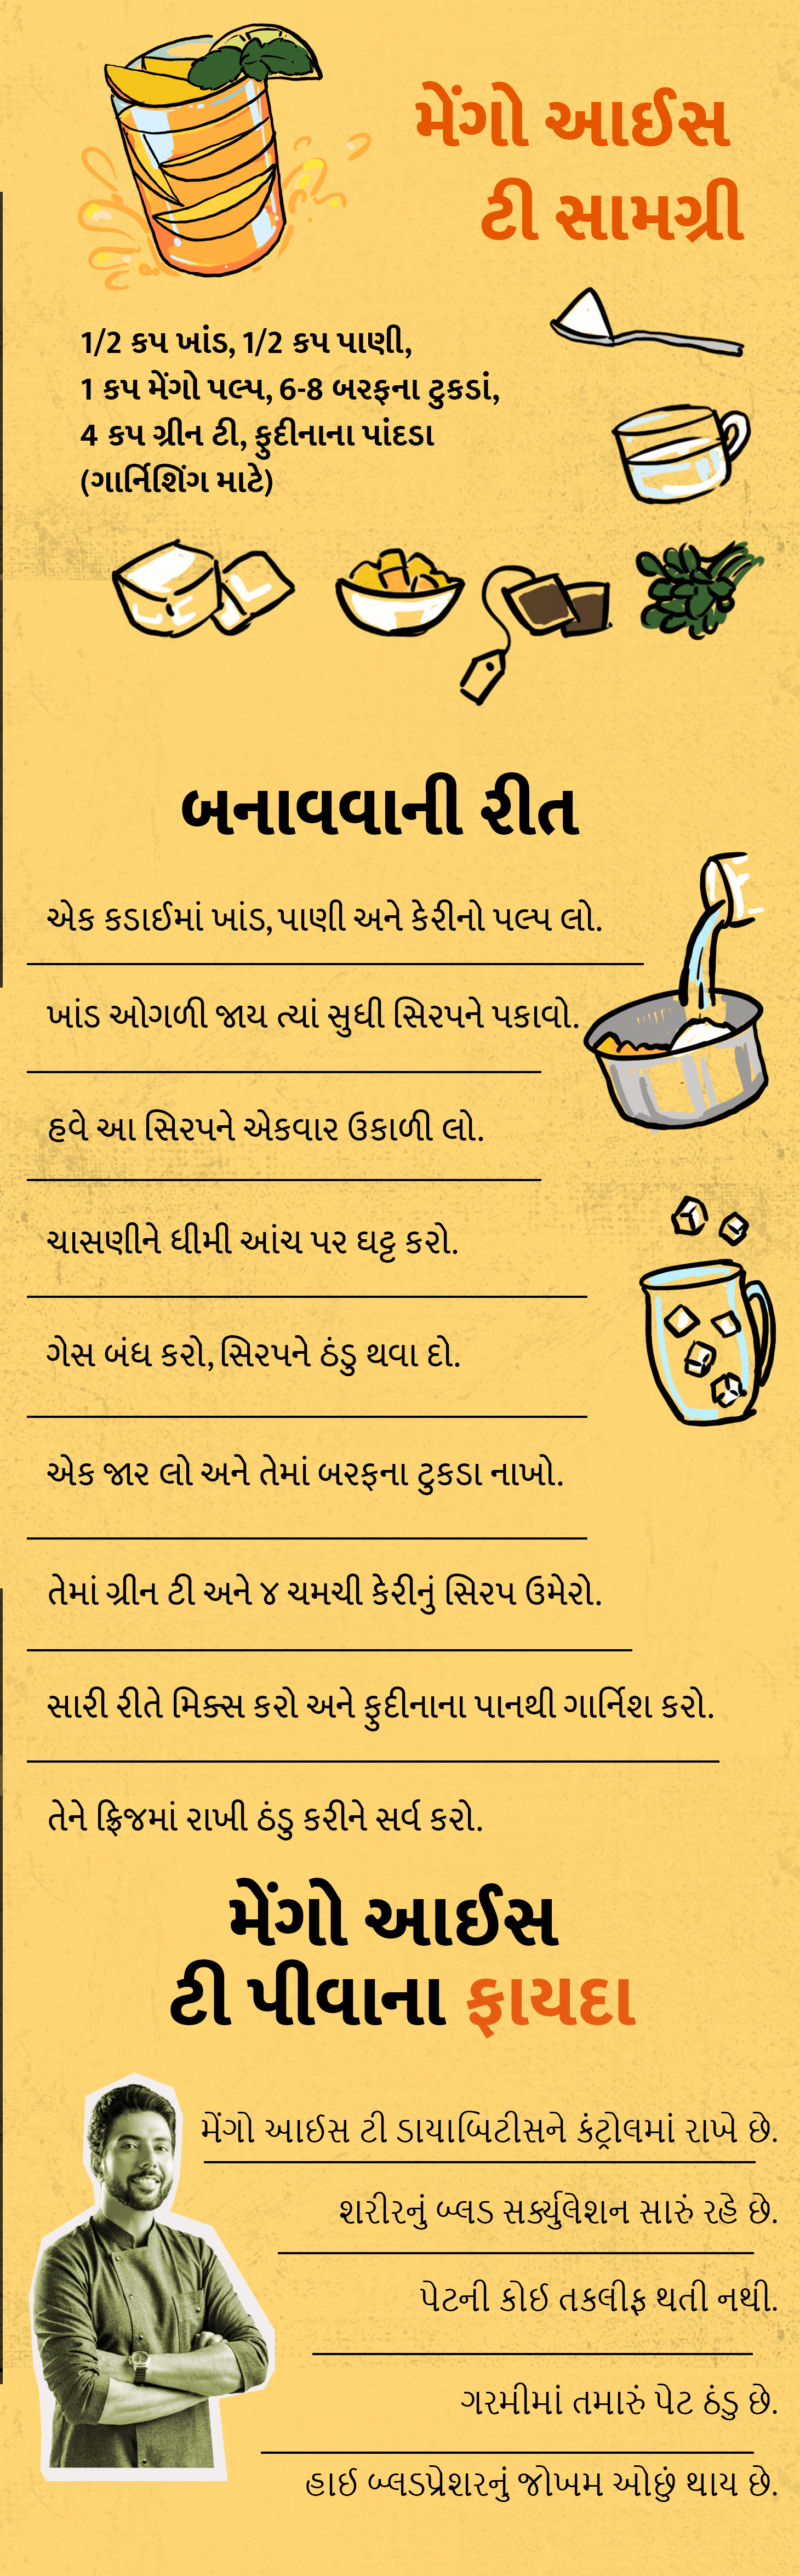 મેંગો આઈસ
ટી સામગ્રી
1/2 કપ ખાંડ, 1/2 કપ પાણી,
1 કપ મેંગો પલ્પ, 6-8 બરફના ટુકડાં,
4 કપ ગ્રીન ટી, ફુદીનાના પાંદડા
(ગાર્નિશિંગ માટે)
બનાવવાની રીત
એક કડાઈમાં ખાંડ, પાણી અને કેરીનો પલ્પ લો.
ખાંડ ઓગળી જાય ત્યાં સુધી સિરપને પકાવો.
હવે આ સિરપને એકવાર ઉકાળી લો.
ચાસણીને ધીમી આંચ પર ઘટ્ટ કરો.
ગેસ બંધ કરો, સિરપને ઠંડુ થવા દો.
એક જાર લો અને તેમાં બરફના ટુકડા નાખો.
તેમાં ગ્રીન ટી અને ૪ ચમચી કેરીનું સિરપ ઉમેરો.
સારી રીતે મિક્સ કરો અને ફુદીનાના પાનથી ગાર્નિશ કરો.
તેને ફ્રિજમાં રાખી ઠંડુ કરીને સર્વ કરો.
મેંગો આઈસ
ટી પીવાના ફાયદા
મેંગો આઈસ ટી ડાયાબિટીસને કંટ્રોલમાં રાખે છે.
શરીરનું બ્લડ સર્ક્યુલેશન સારું રહે છે.
પેટની કોઈ તકલીફ થતી નથી.
ગરમીમાં તમારું પેટ ઠંડુ છે.
હાઈ બ્લડપ્રેશરનું જોખમ ઓછું થાય છે.